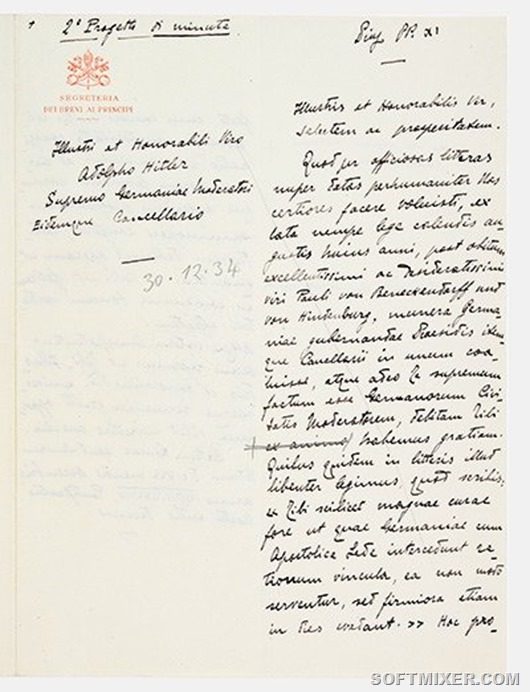 2° Progetto di minuta.
SEGRETERIA
DEI BREVI AI PRINCIPI
Illustri et Honorabili Viro
Adolpho Hitler
Supremo Germaniae Moderatori
Eidemque Cancellario
30.12.34
Pius PP. XI
Illustris et Honorabilis Vir,
salutem ac prosperitatem.
Quod per officiosas litteras
nuper datas perhumaniter Nos
certiores facere voluisti, ex
lata nempe lege calendis au-
gustis huius anni, post obitum
excellentissimi ac desideratissimi
viri Pauli von Beneckendorff und
von Hindenburg, munera Germa-
niae gubernandae Praesidis idem-
que Cancellarii in unum coa-
luisse, atque adeo Te supremum
factum esse Germanorum Civi-
tatis Moderatorem, debitam Tibi
ex animo habemus gratiam.
Quibus quidem in litteris illud
libenter legimus, quod scribis:
ex Tibi scilicet magnae curae
fore ut quae Germaniae cum
Apostolica Sede intercedunt ne-
cessitudinum vincula, ea non modo
serventur, sed firmiora etiam
in dies evadant. >> Hoc pro-
SOFTMIXER.COM